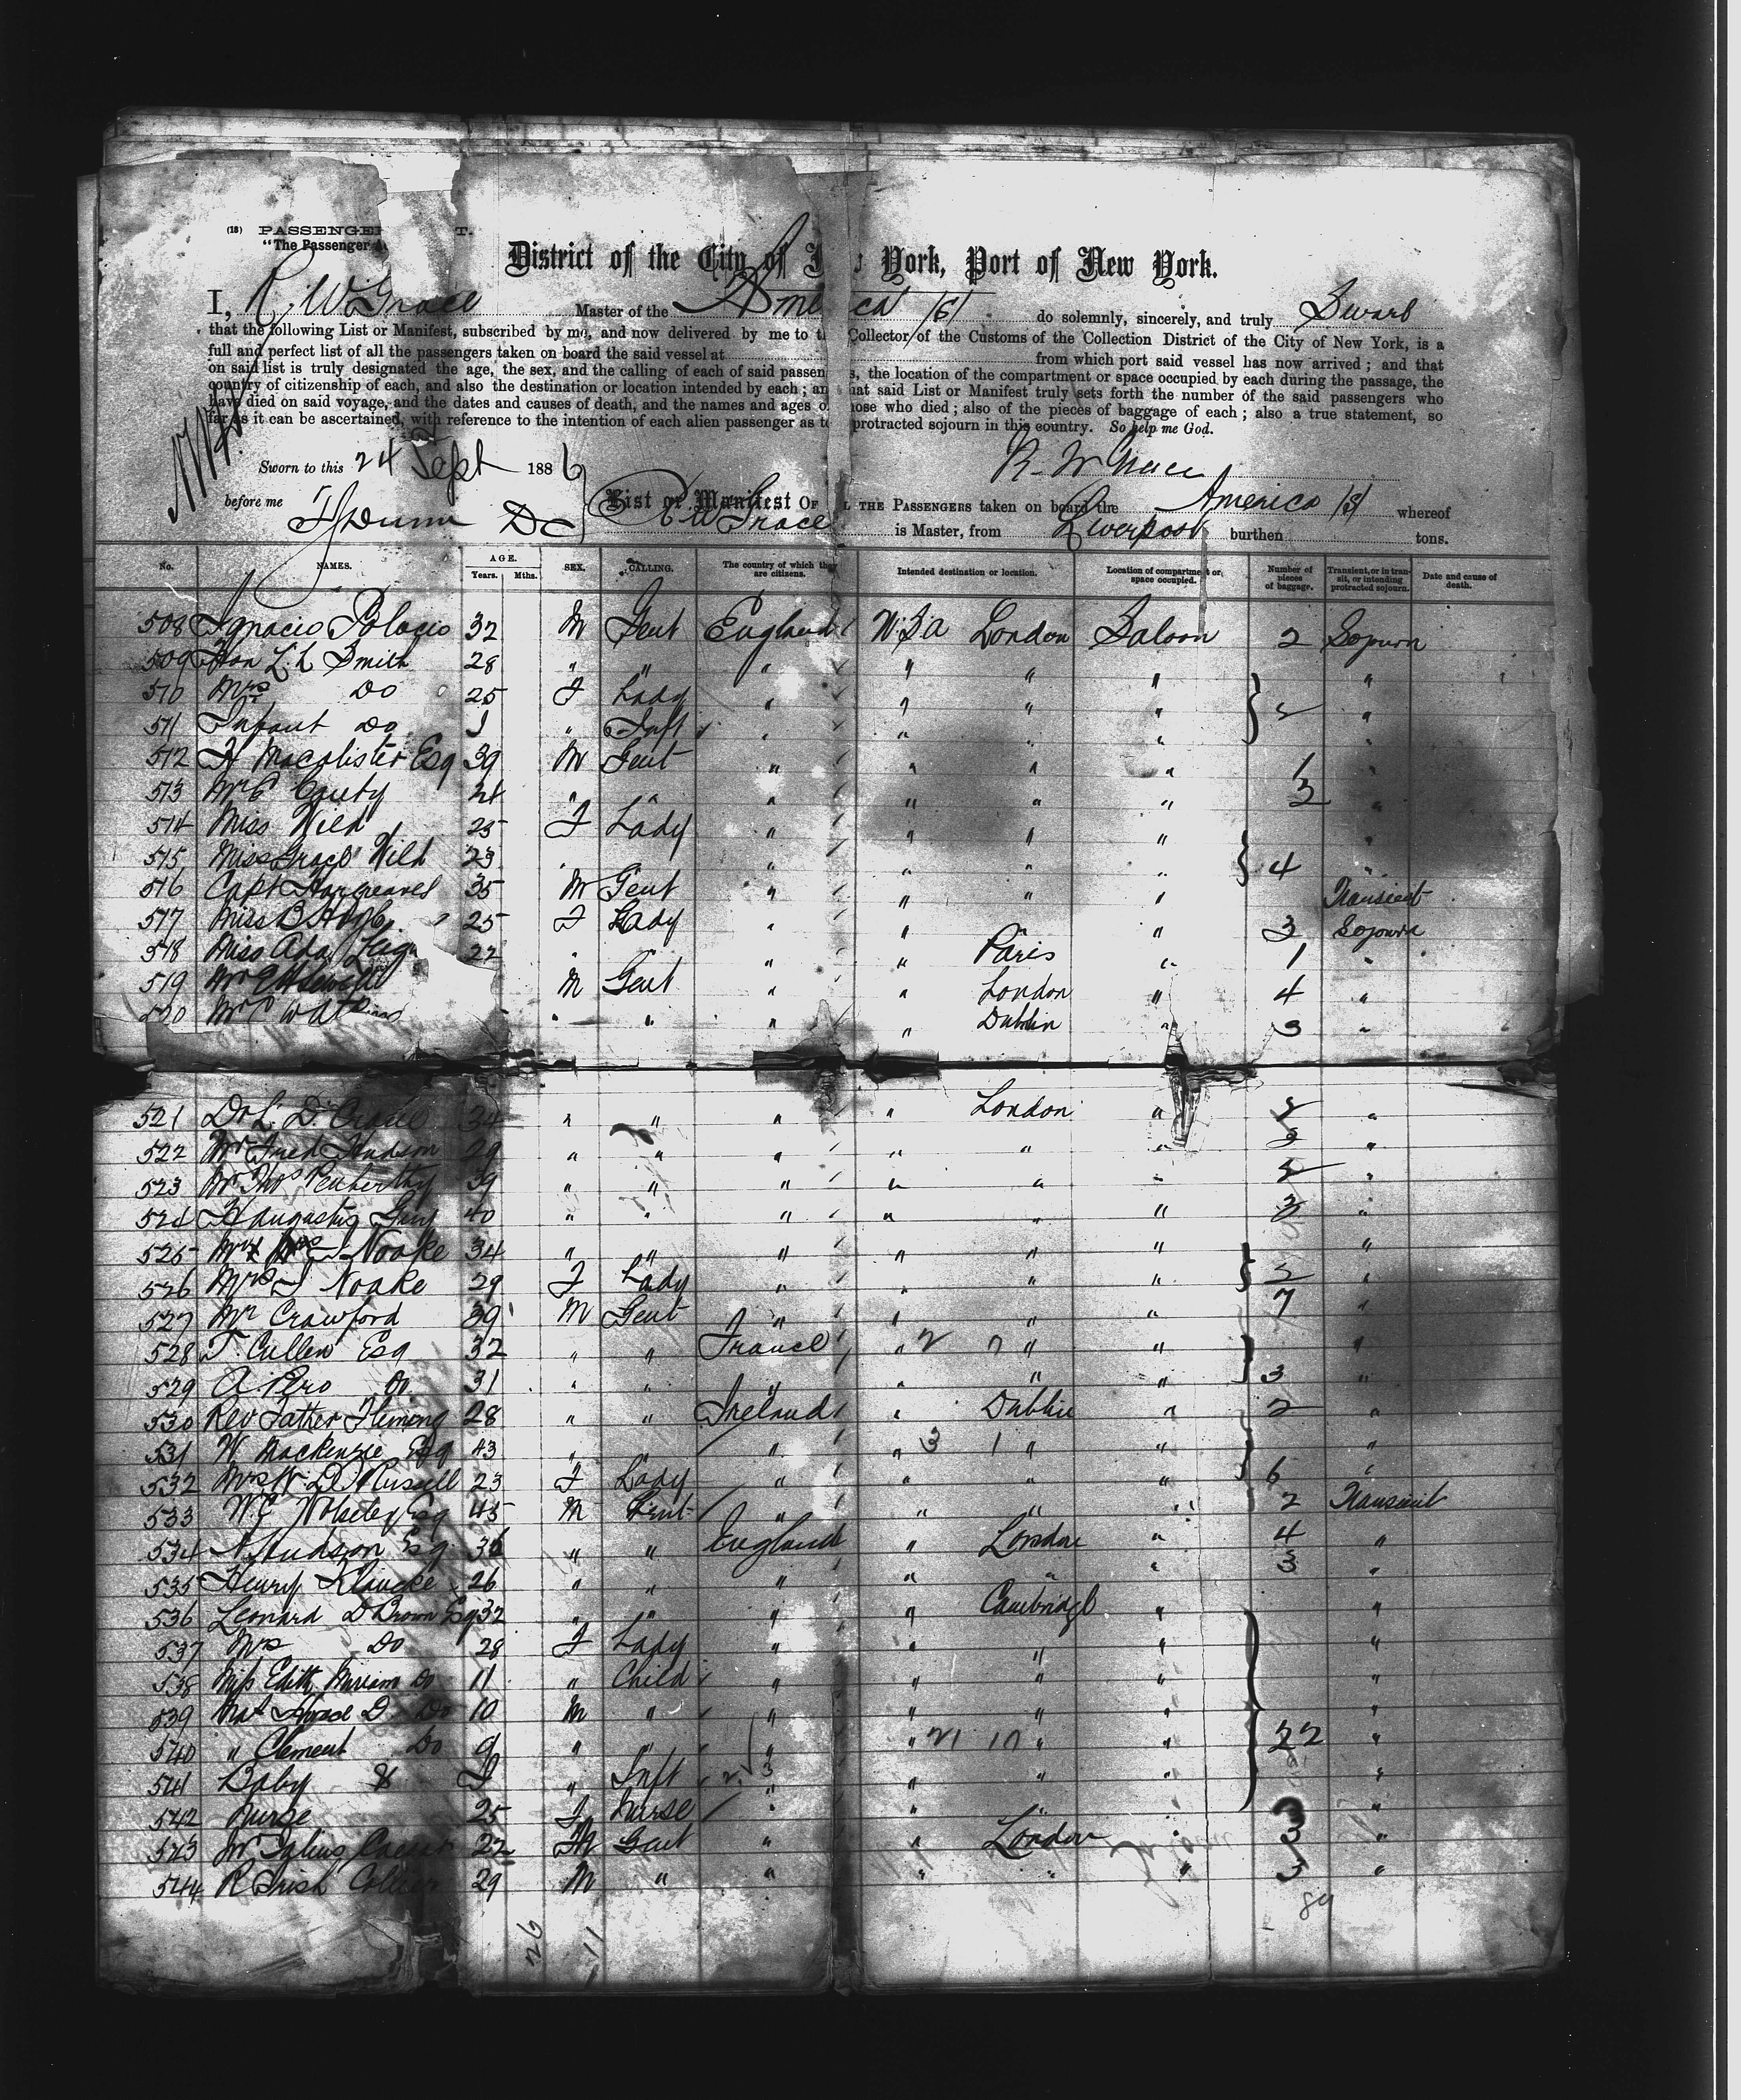 (13) PASSENGER
"The Passenger
District of the City of York, Port of New York.
I, R. W Grace Master of the America /S/ do solemnly, sincerely, and truly Swear
that the following List or Manifest, subscribed by me, and now delivered by me to t Collector of the Customs of the Collection District of the City of New York, is a
full and perfect list of all the passengers taken on board the said vessel at from which port said vessel has now arrived; and that
on said list is truly designated the age, the sex, and the calling of each of said passen s, the location of the compartment or space occupied by each during the passage, the
country of citizenship of each, and also the destination or location intended by each; an hat said List or Manifest truly sets forth the number of the said passengers who
have died on said voyage, and the dates and causes of death, and the names and ages o hose who died; also of the pieces of baggage of each; also a true statement, so
far as it can be ascertained, with reference to the intention of each alien passenger as to protracted sojourn in this country. So help me God.
Sworn to this 24 Sept 1886 R. W Grace
before me DC List or Manifest OF L THE PASSENGERS taken on board the America /S/ whereof
R W Grace is Master, from Liverpool burthen tons.
No. NAMES. AGE. Years. Mths. SEX. CALLING. The country of which they are citizens. Intended destination or location. Location of compartment or space occupied. Number of pieces of baggage. Transient, or in transit, or intending protracted sojourn. Date and cause of death.
508 Ignacio Polacio 32 M Gent England London Saloon 2 Sojourn
509 Hon L. L Smith 28 " " " " " " "
510 Mrs Do 25 F Lady " " " " "
511 Infant Do 1 " Inft " " " " 5 "
512 Macalister Esq 39 M Gent " " " " 1 "
513 Mr 24 " " " " " " 3 "
514 Miss Wild 25 F Lady " " " " "
515 Miss Grace Wild 23 " " " " " 4 "
516 Capt Hargreaves 35 M Gent " " " " Transient
517 Miss B 25 F Lady " " " " 3 Sojourn
518 Miss Ada 22 " " " Paris " 1 "
519 Mr M Gent " " London " 4 "
520 Mr C " " " " Dublin " 3 "
521 Dr L. D. 34 " " " " London " "
522 Mr Fred Hudson 29 " " " " " " "
523 Mr Thos Penberthy 39 " " " " " " "
524 40 " " " " " " 3 "
525 Mr Noake 34 " " " " " " "
526 Mrs Noake 29 F Lady " " " " 5 "
527 Mr Crawford 39 M Gent " " " " 7 "
528 T. Cullen Esq 32 " " France " 2 7 " " "
529 A. Do 31 " " " " " " 3 "
530 Rev Father Fleming 28 " " Ireland " Dublin " 2 "
531 W. Mackenzie Esq 43 " " " " 3 1 " " "
532 Mrs W. D Russell 23 F Lady " " " " 6 "
533 W. C Wolseley Esq 45 M Gent " " " " 2 Transient
534 Hudson Esq 36 " " England " London " 4 "
535 Henry Klaucke 26 " " " " " " 3 "
536 Leonard D Brown Esq 32 " " " " Cambridge " "
537 Mrs Do 28 F Lady " " " " "
538 Miss Edith Miriam Do 11 " Child " " " " "
539 Mast D. Do 10 M " " " " " "
540 " Clement Do 9 " " " " 21 17 " " 22 "
541 Baby " Inft " " " " "
542 Nurse 25 F Nurse " " " 3 "
543 Mr Julius Caesar 22 M Gent " " London " 3 "
544 R Irish 29 M " " " " " 3 "
26 11